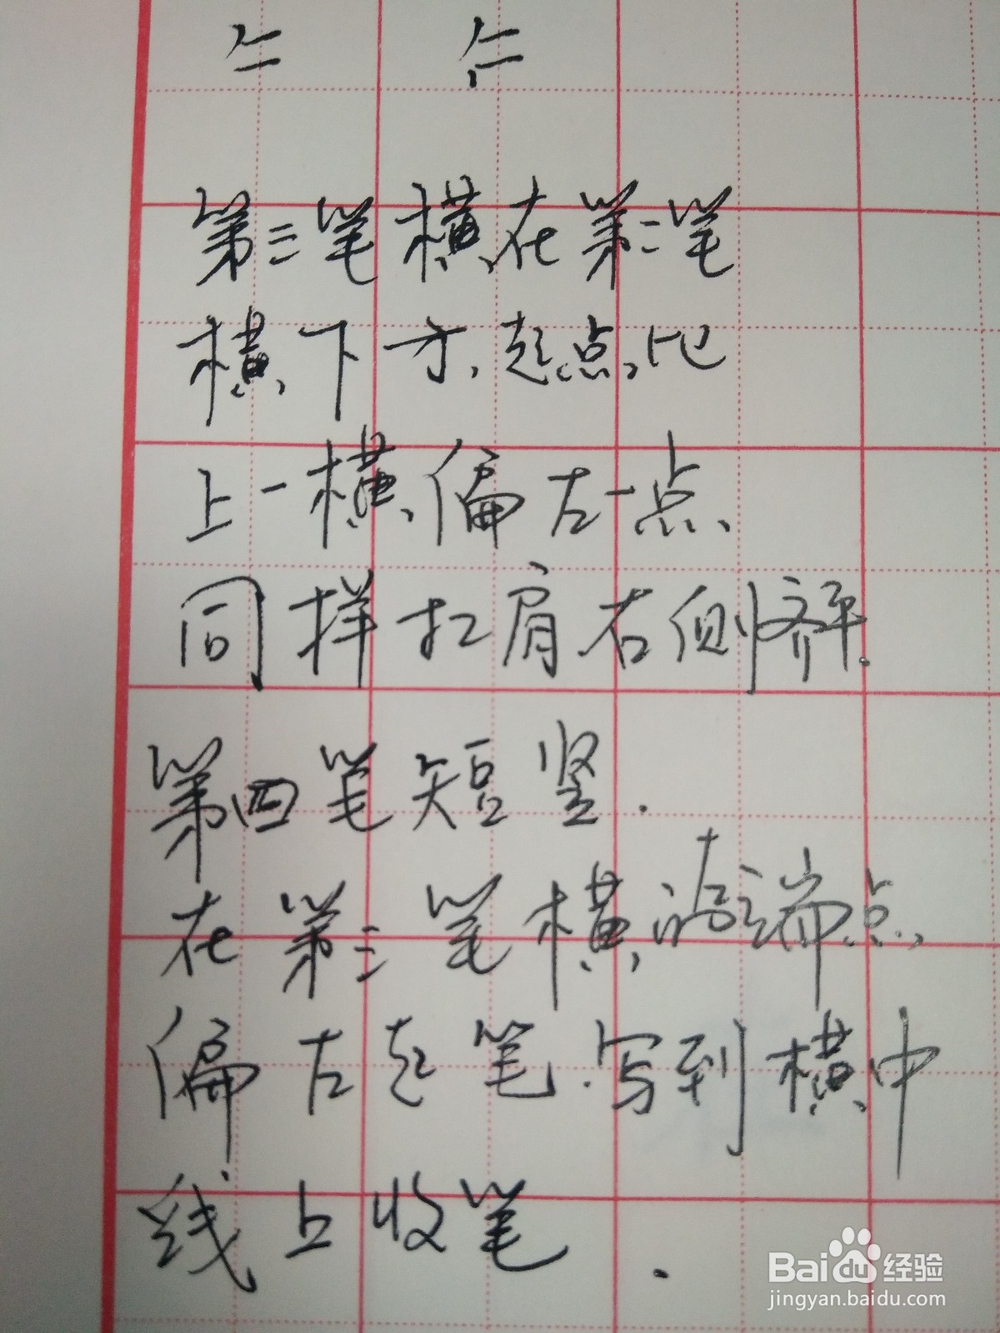 第三笔横,在第二笔
横,下方,起点,比
上一横,偏左一点,
同样抗肩右侧齐平.
第四笔短竖.
在第三笔横,的左端点,
偏左起笔.写到横中
线上收笔.
Baidu经验
jingyan.baidu.com